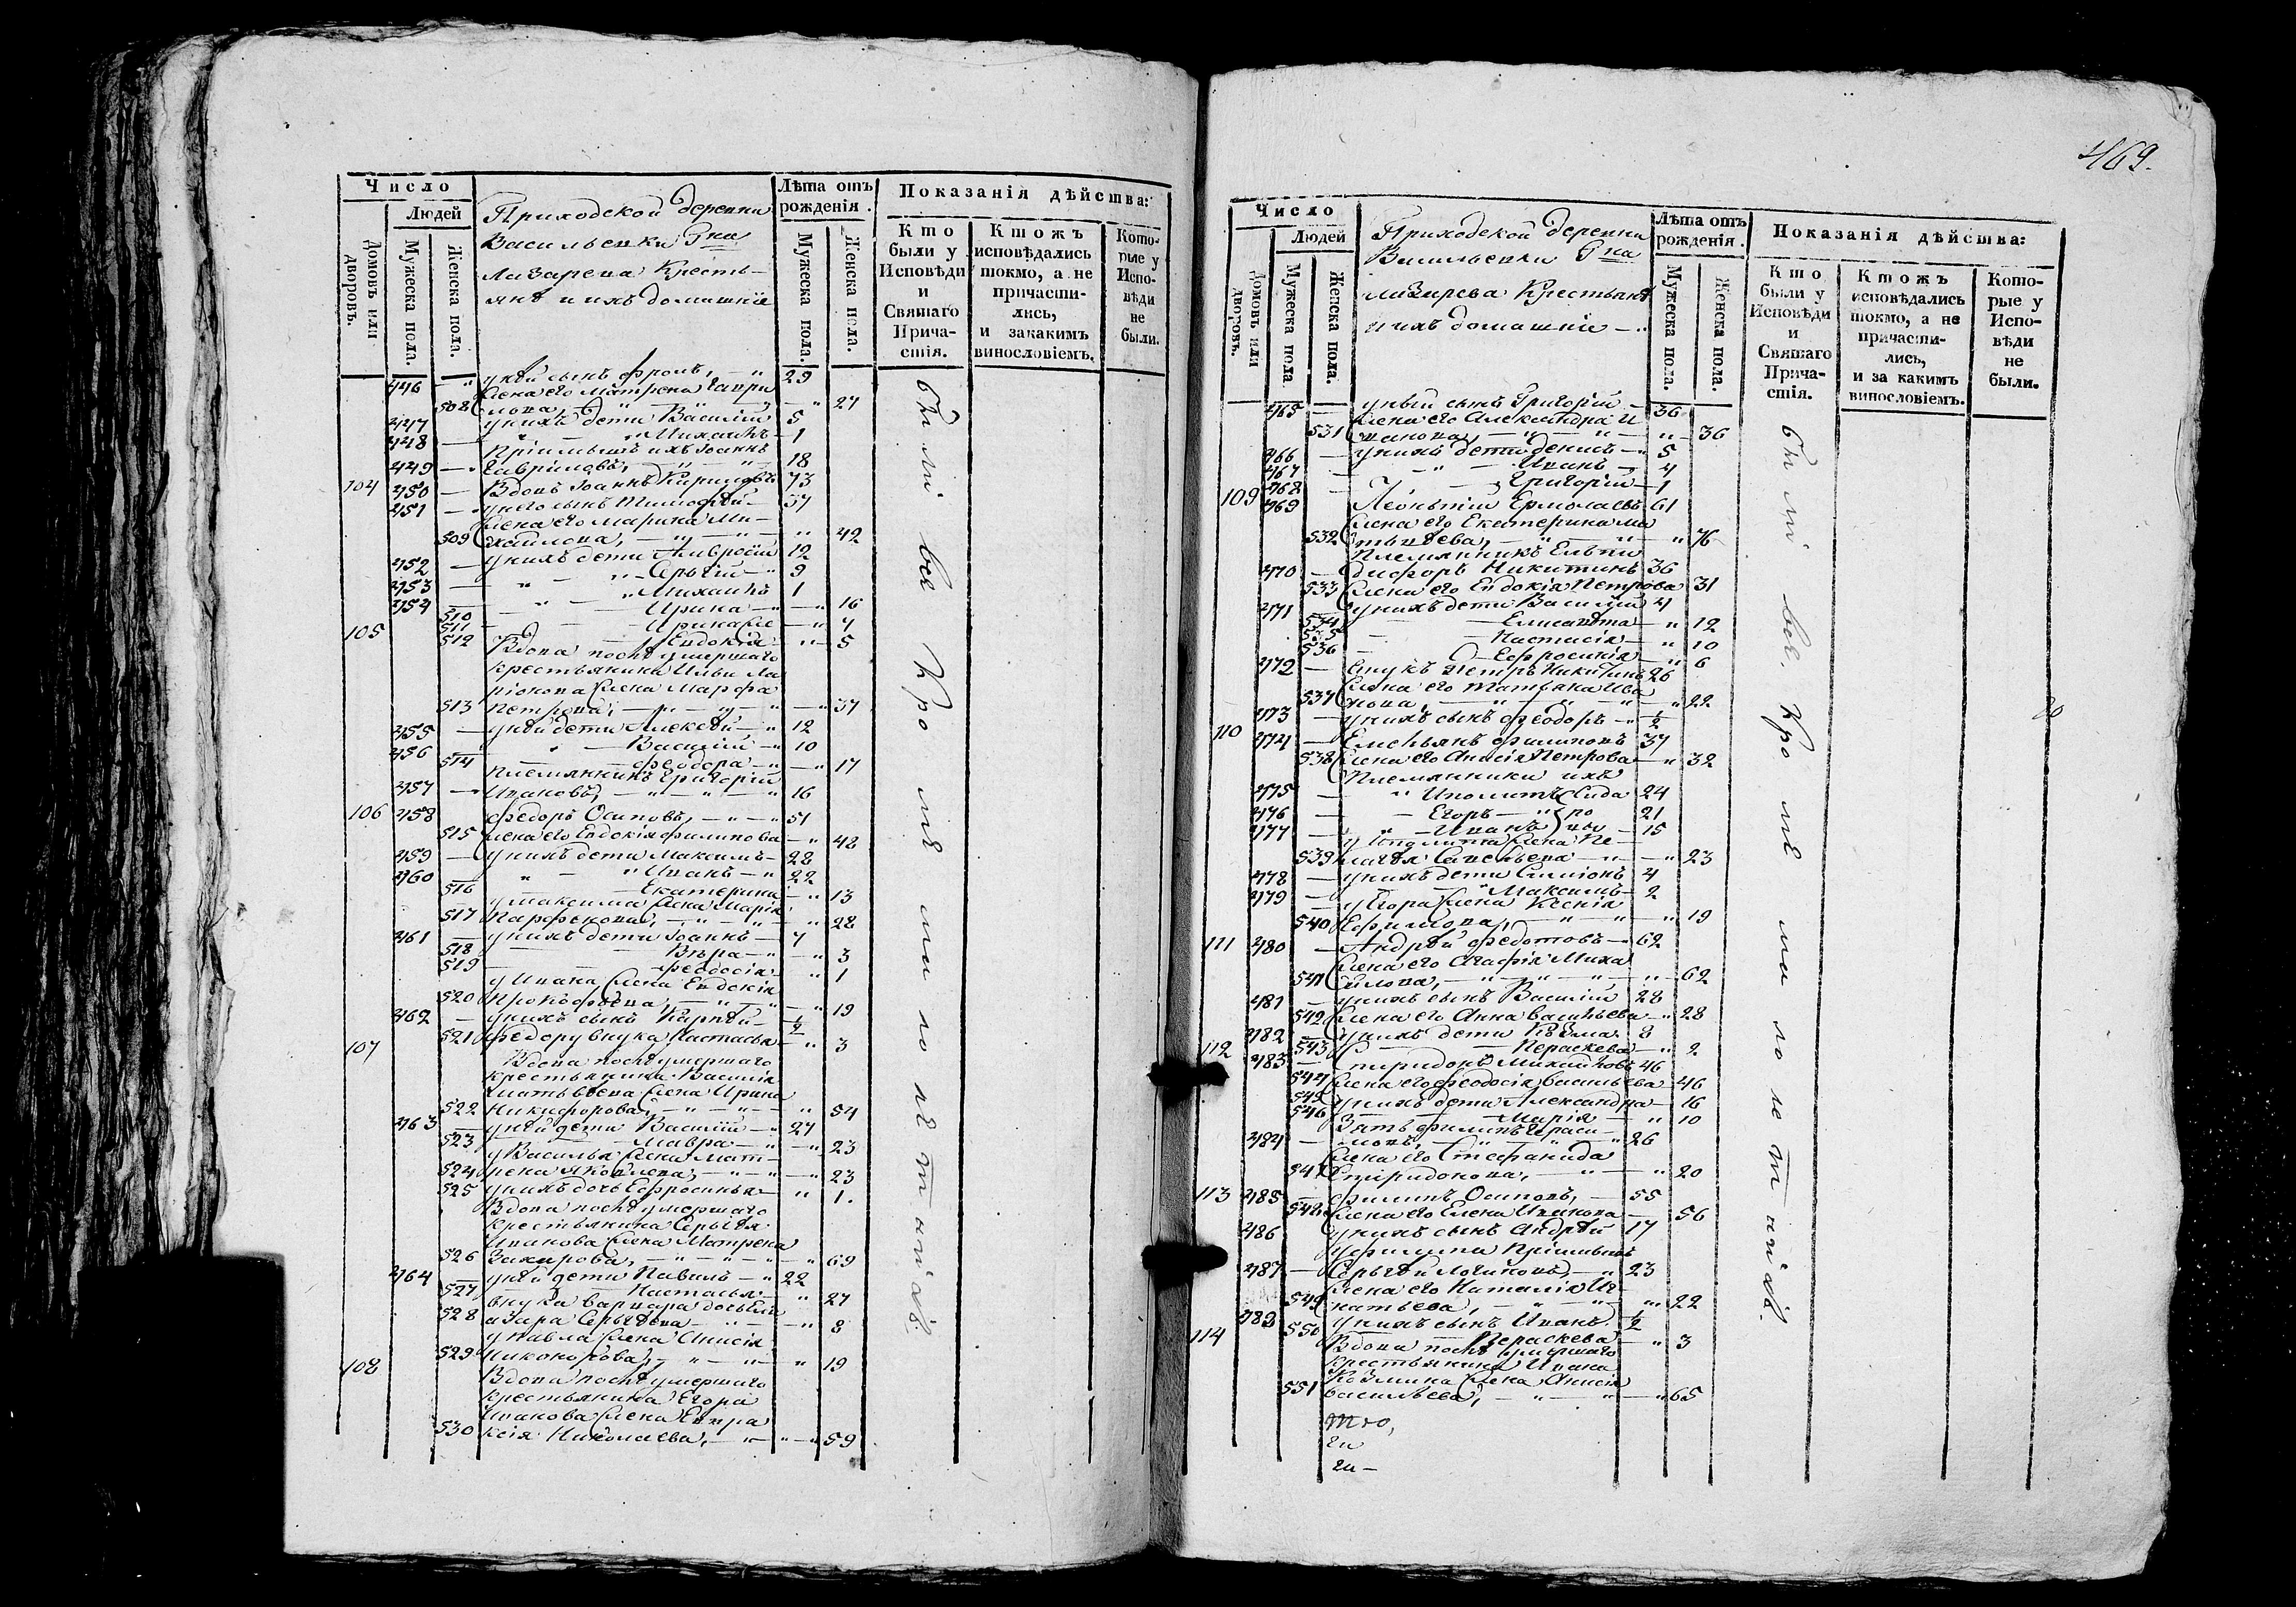 469.
Число
Людей
Домовъ или дворовъ.
Мужеска пола.
Женска пола.
Приходской деревни
Васильевки Гна
Лазарева Кресть-
янѣ и ихъ домашніе
Лѣта отъ рожденія.
Мужеска пола.
Женска пола.
Показанія дѣйства:
Кто были у Исповѣди и Святаго Причастія.
Ктожъ исповѣдались токмо, а не причастились, и закакимъ винословіемъ.
Которые у Исповѣди не были.
446 — " у ней сынъ Фролъ, — " 29
жена его Матрена Гаври
508 лова, — " — " 27
447 у нихъ дети Василій 5
448 — " — " Михаилъ — 1
Пріимышъ ихъ Іоаннъ
449 — Гавриловъ, — " — " 18
104 450 — Вдовъ Іоаннъ Кириловъ 73
451 — у него сынъ Тимофѣй — 37
жена его Марина Ми-
509 хайлова, — " — " — " 42
452 — у нихъ дети Амвросій 12
453 — " — " — Сергій — " 9
454 — " — " Михаилъ 1
510 — — Ирина — " — " 16
511 — — Ирина же — " 7
105 512 — — Евдокія — " — 5
Вдова послѣ умершаго
крестьянина Ильи Ла
ріонова жена Марфа
513 Петрова, — " — " — " 37
455 — у ней дети Алексѣй — " 12
456 — " — Василій — " 10
514 — — Феодора — " — " 17
племянникъ Григорій
457 — Ивановъ, — " — " — " 16
106 458 Федоръ Осиповъ, — " — " 51
515 жена его Евдокія Филипова — " 48
459 — у нихъ дети Максимъ — 28
460 — " — " Иванъ — " 22
516 — — Екатерина — " 13
у Максима жена Марія
517 Парфенова, — " — " — " 28
461 — у нихъ дети Іоаннъ — 7
518 — — Вѣра — " — " 3
519 — — Феодосія — " 1
у Ивана жена Евдокія
520 Прокофьева, — " — " — " 19
462 — у нихъ сынъ Карпѣй — ½
521 Федору внука Настасья — " 3
107 Вдова послѣ умершаго
крестьянина Василія
Матвѣева жена Ирина
522 Никифорова, — " — " — " 54
463 — у ней дети Василій — " 27
523 — — Мавра — " — " 23
у Василья жена Мат-
524 рена Яковлева, — " — " — " 23
525 у нихъ дочь Ефросинья — " 1.
Вдова послѣ умершаго
крестьянина Сергѣя
Иванова жена Матрена
526 Захарова, — " — " — " 69
464 у ней дети Павилъ — " 22
527 — — Настасья — " 27
внука Варвара дочь
528 Сергѣева — " — " 8
у Павла жена Анисія
529 Никонорова, — " — " — " 19
108 Вдова послѣ умершаго
крестьянина Егора
Иванова жена Евпра
530 ксія Николаева, — " — " 59
были все кромѣ малолѣтнихъ.
Число
Людей
Домовъ или дворовъ.
Мужеска пола.
Женска пола.
Приходской деревни
Васильевки Гна
Лазарева Крестьянѣ
и ихъ домашніе —
Лѣта отъ рожденія.
Мужеска пола.
Женска пола.
Показанія дѣйства:
Кто были у Исповѣди и Святаго Причастія.
Ктожъ исповѣдались токмо, а не причастились, и за какимъ винословіемъ.
Которые у Исповѣди не были.
465 — у ней сынъ Григорій — 36
жена его Александра И
531 ванова, — " — " — " — 36
466 — у нихъ дети Денисъ — " 5
467 — " — Иванъ — " 4
468 — " — Григорій — 1
109 469 Леонтій Ермолаевъ 61
жена его Екатерина Ма
532 твѣева, — " — " — " 76
Племянникъ Ельпи
470 — дифоръ Никитинъ 36
533 жена его Евдокія Петрова 31
471 — у нихъ дети Василій 4
534 — — Елисавета — " 12
535 — — Настасія — " 10
536 — — Ефросинія — " 6
472 — Внукъ Петръ Никитинъ 26
жена его Татьяна Ива
537 нова, — " — " — " 22
473 — у нихъ сынъ Феодоръ — " ½
110 474 — Емельянъ Филиповъ 37
538 жена его Анисія Петрова — " 32
Племянники ихъ
475 — " Иполитъ Сидо 24
476 — — Егоръ — " ро 21
477 — " — Иванъ вы — 15
у Іполита жена Пе-
539 лагея Савельева — " — " 23
478 — у нихъ дети Симіонъ 4
479 — — Максимъ — 2
у Егора жена Ксенія
540 Ефимова, — " — " — " 19
111 480 — Андрѣй Федотовъ — 62
жена его Агафія Миха
541 йлова, — " — " — " — 62
481 — у нихъ сынъ Василій 28
542 жена его Анна Васильева — " 28
482 — у нихъ дети Козма. 8
543 — — Пераскева — " 2
112 483 — Спиридонъ Михайловъ 46
544 жена его Феодосія Васильева 46
545 у нихъ дети Александра — 16
546 — — Марія — " 10
Зять Филипъ Гераси-
484 — мовъ, — " — " — " 26
жена его Стефанида
547 Спиридонова, — " — " 20
113 485 — Филипъ Осиповъ, — 55
548 жена его Елена Иванова — 56
486 у нихъ сынъ Андрѣй 17
у Филипа Пріимышъ
487 — Сергѣй Логиновъ, — " 23
жена его Наталія Иг-
549 натьева, — " — " — " 22
488 у нихъ сынъ Иванъ. ½
550 — — Пераскева — " 3
114 Вдова послѣ умершаго
крестьянина Ивана
Козмина жена Анисія
551 Васильева, — " — " — " 65
были все кромѣ малолѣтнихъ.